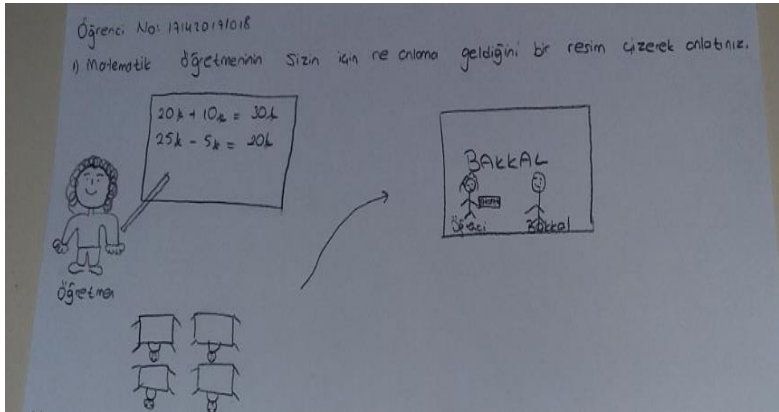 Öğrenci No: 17142019/018
1) Matematik öğretmeninin sizin için ne anlama geldiğini bir resim çizerek anlatınız.
20₺ + 10₺ = 30₺
25₺ - 5₺ = 20₺
Öğretmen
BAKKAL
Öğrenci
Bakkal